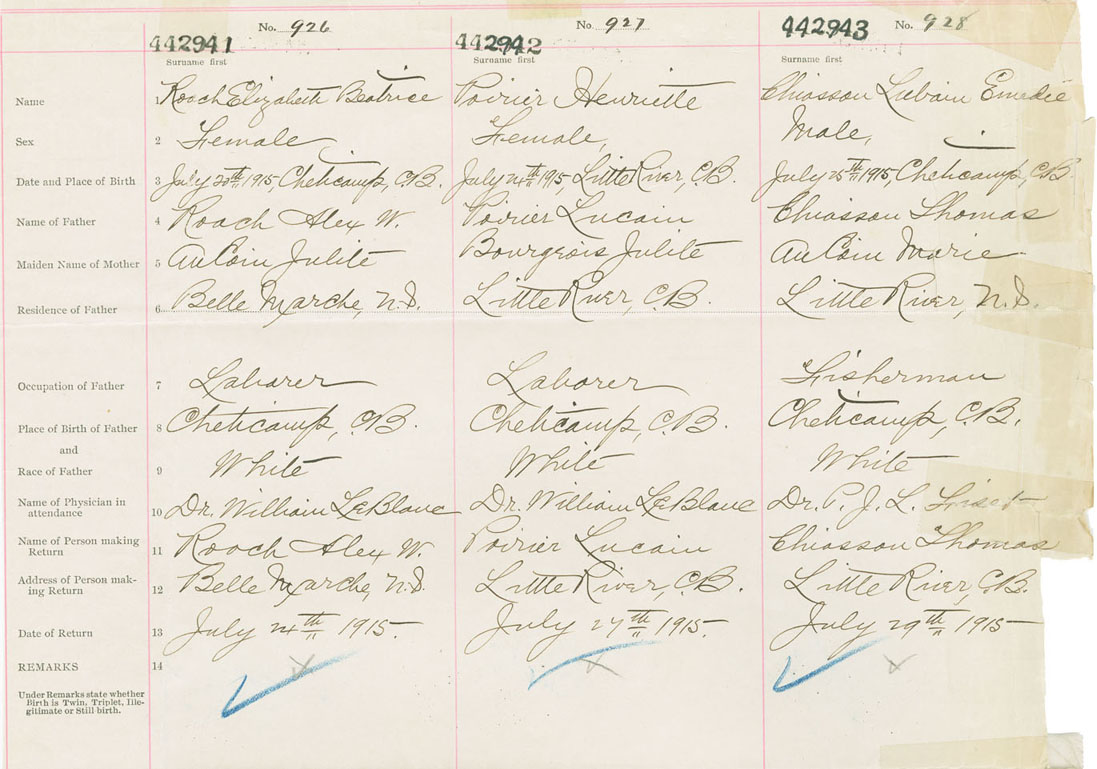 No. 926 No. 927 No. 928
442941 442942 442943
Surname first Surname first Surname first
Name 1 Roach Elizabeth Beatrice Poirier Henriette Chiasson Lubain Emedie
Sex 2 Female Female, Male,
Date and Place of Birth 3 July 20th 1915, Cheticamp, C.B. July 24th 1915, Little River, C.B. July 25th 1915, Cheticamp, C.B.
Name of Father 4 Roach Alex W. Poirier Lucain Chiasson Thomas
Maiden Name of Mother 5 AuCoin Julite Bourgeois Julite AuCoin Marie
Residence of Father 6 Belle Marche, N.S. Little River, C.B. Little River, N.S.
Occupation of Father 7 Laborer Laborer Fisherman
Place of Birth of Father 8 Cheticamp, C.B. Cheticamp, C.B. Cheticamp, C.B.
and
Race of Father 9 White White White
Name of Physician in
attendance 10 Dr. William LeBlanc Dr. William LeBlanc Dr. P. J. L. Fiset
Name of Person making
Return 11 Roach Alex W. Poirier Lucain Chiasson Thomas
Address of Person mak-
ing Return 12 Belle Marche, N.S. Little River, C.B. Little River, C.B.
Date of Return 13 July 24th 1915. July 27th 1915. July 29th 1915
REMARKS 14
Under Remarks state whether
Birth is Twin, Triplet, Ille-
gitimate or Still-birth.